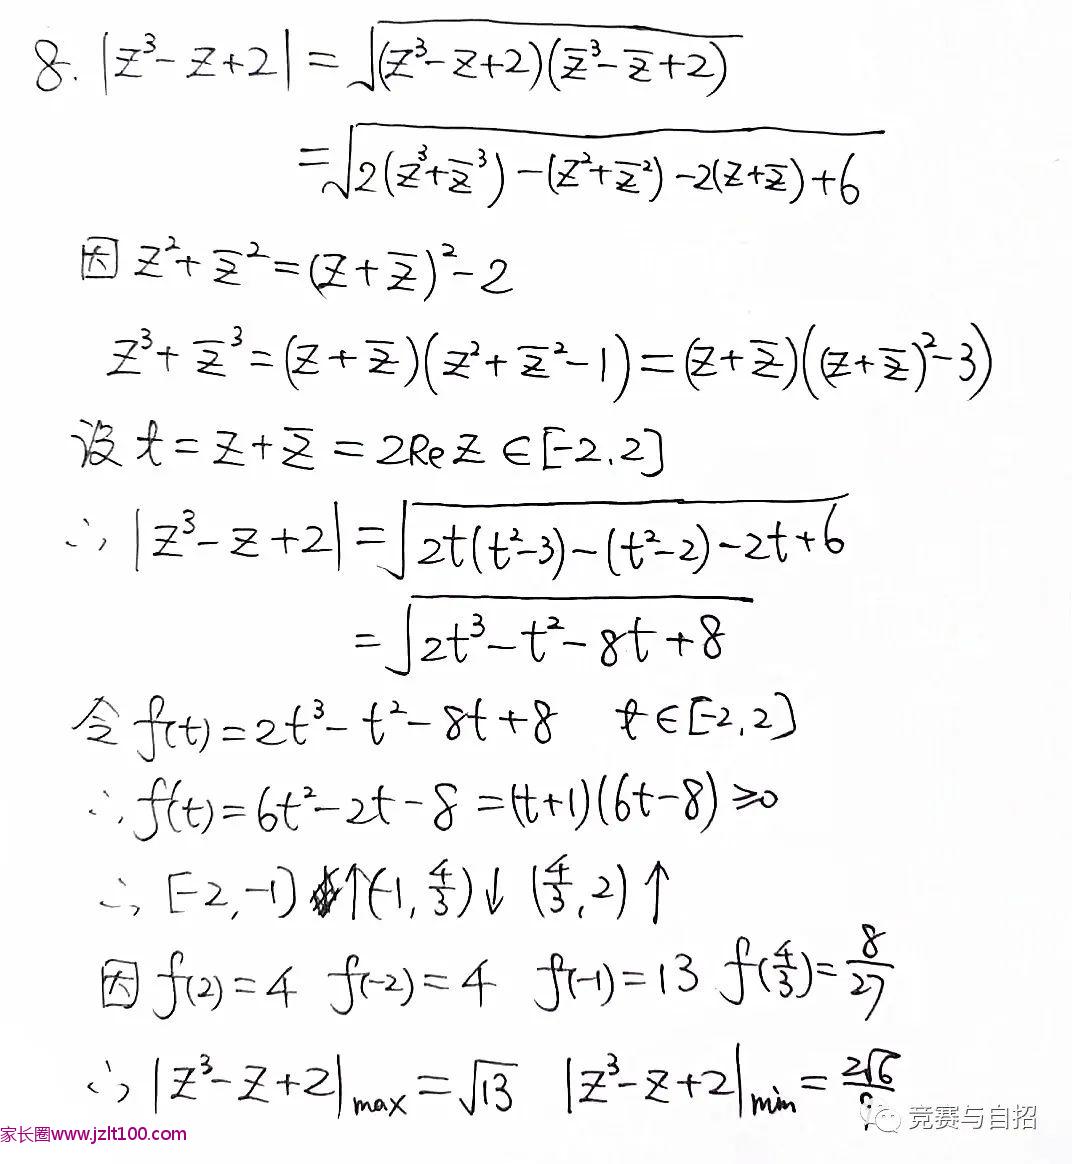 8. |z³-z+2| = √((z³-z+2)(z̄³-z̄+2))
= √(2(z³+z̄³)-(z²+z̄²)-2(z+z̄)+6)
因 z²+z̄² = (z+z̄)²-2
z³+z̄³ = (z+z̄)(z²+z̄²-1) = (z+z̄)((z+z̄)²-3)
设 t = z+z̄ = 2Re z ∈ [-2,2]
∴ |z³-z+2| = √(2t(t²-3)-(t²-2)-2t+6)
= √(2t³-t²-8t+8)
令 f(t) = 2t³-t²-8t+8 t∈[-2,2]
∴ f'(t) = 6t²-2t-8 = (t+1)(6t-8) ≥0
∴ [-2,-1) ↑ (-1, 4/3) ↓ (4/3, 2) ↑
因 f(2)=4 f(-2)=4 f(-1)=13 f(4/3)=8/27
∴ |z³-z+2|max = √13 |z³-z+2|min = 2√6/
竞赛与自招
家长圈www.jzlt100.com